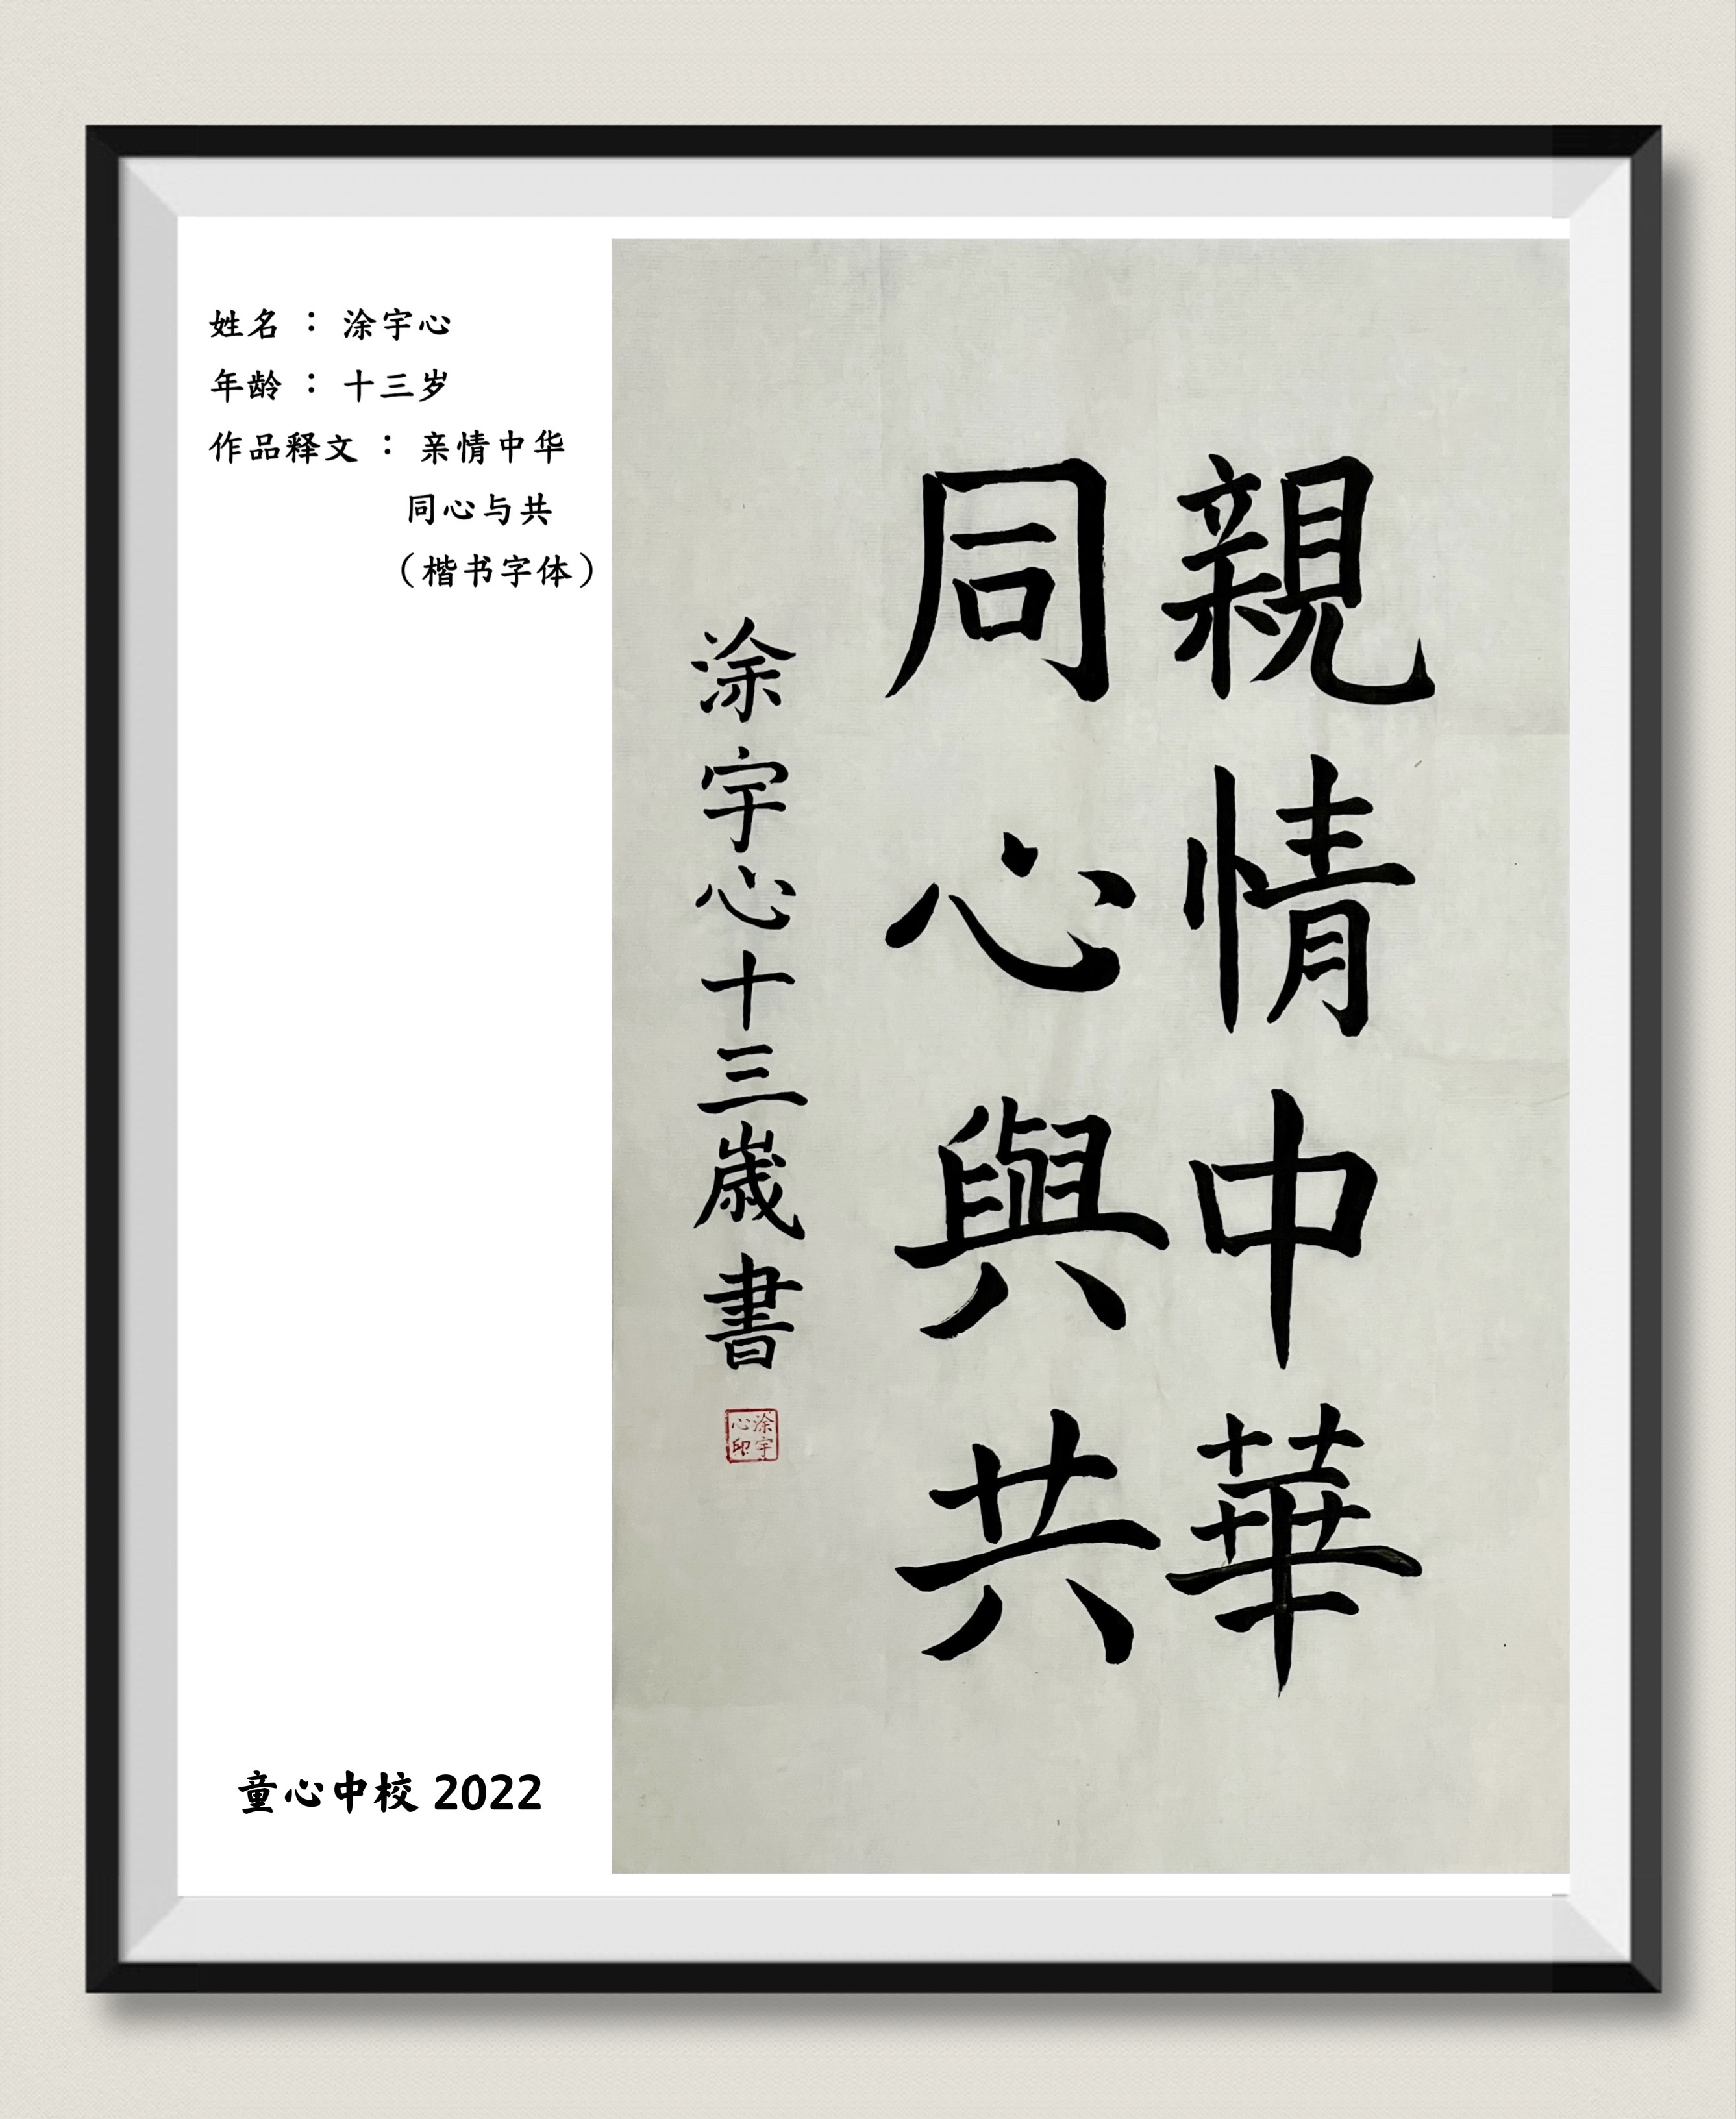 姓名：涂宇心
年龄：十三岁
作品释文：亲情中华
同心与共
（楷书字体）
親情中華
同心與共
涂宇心十三歲書
涂宇
心印
童心中校 2022